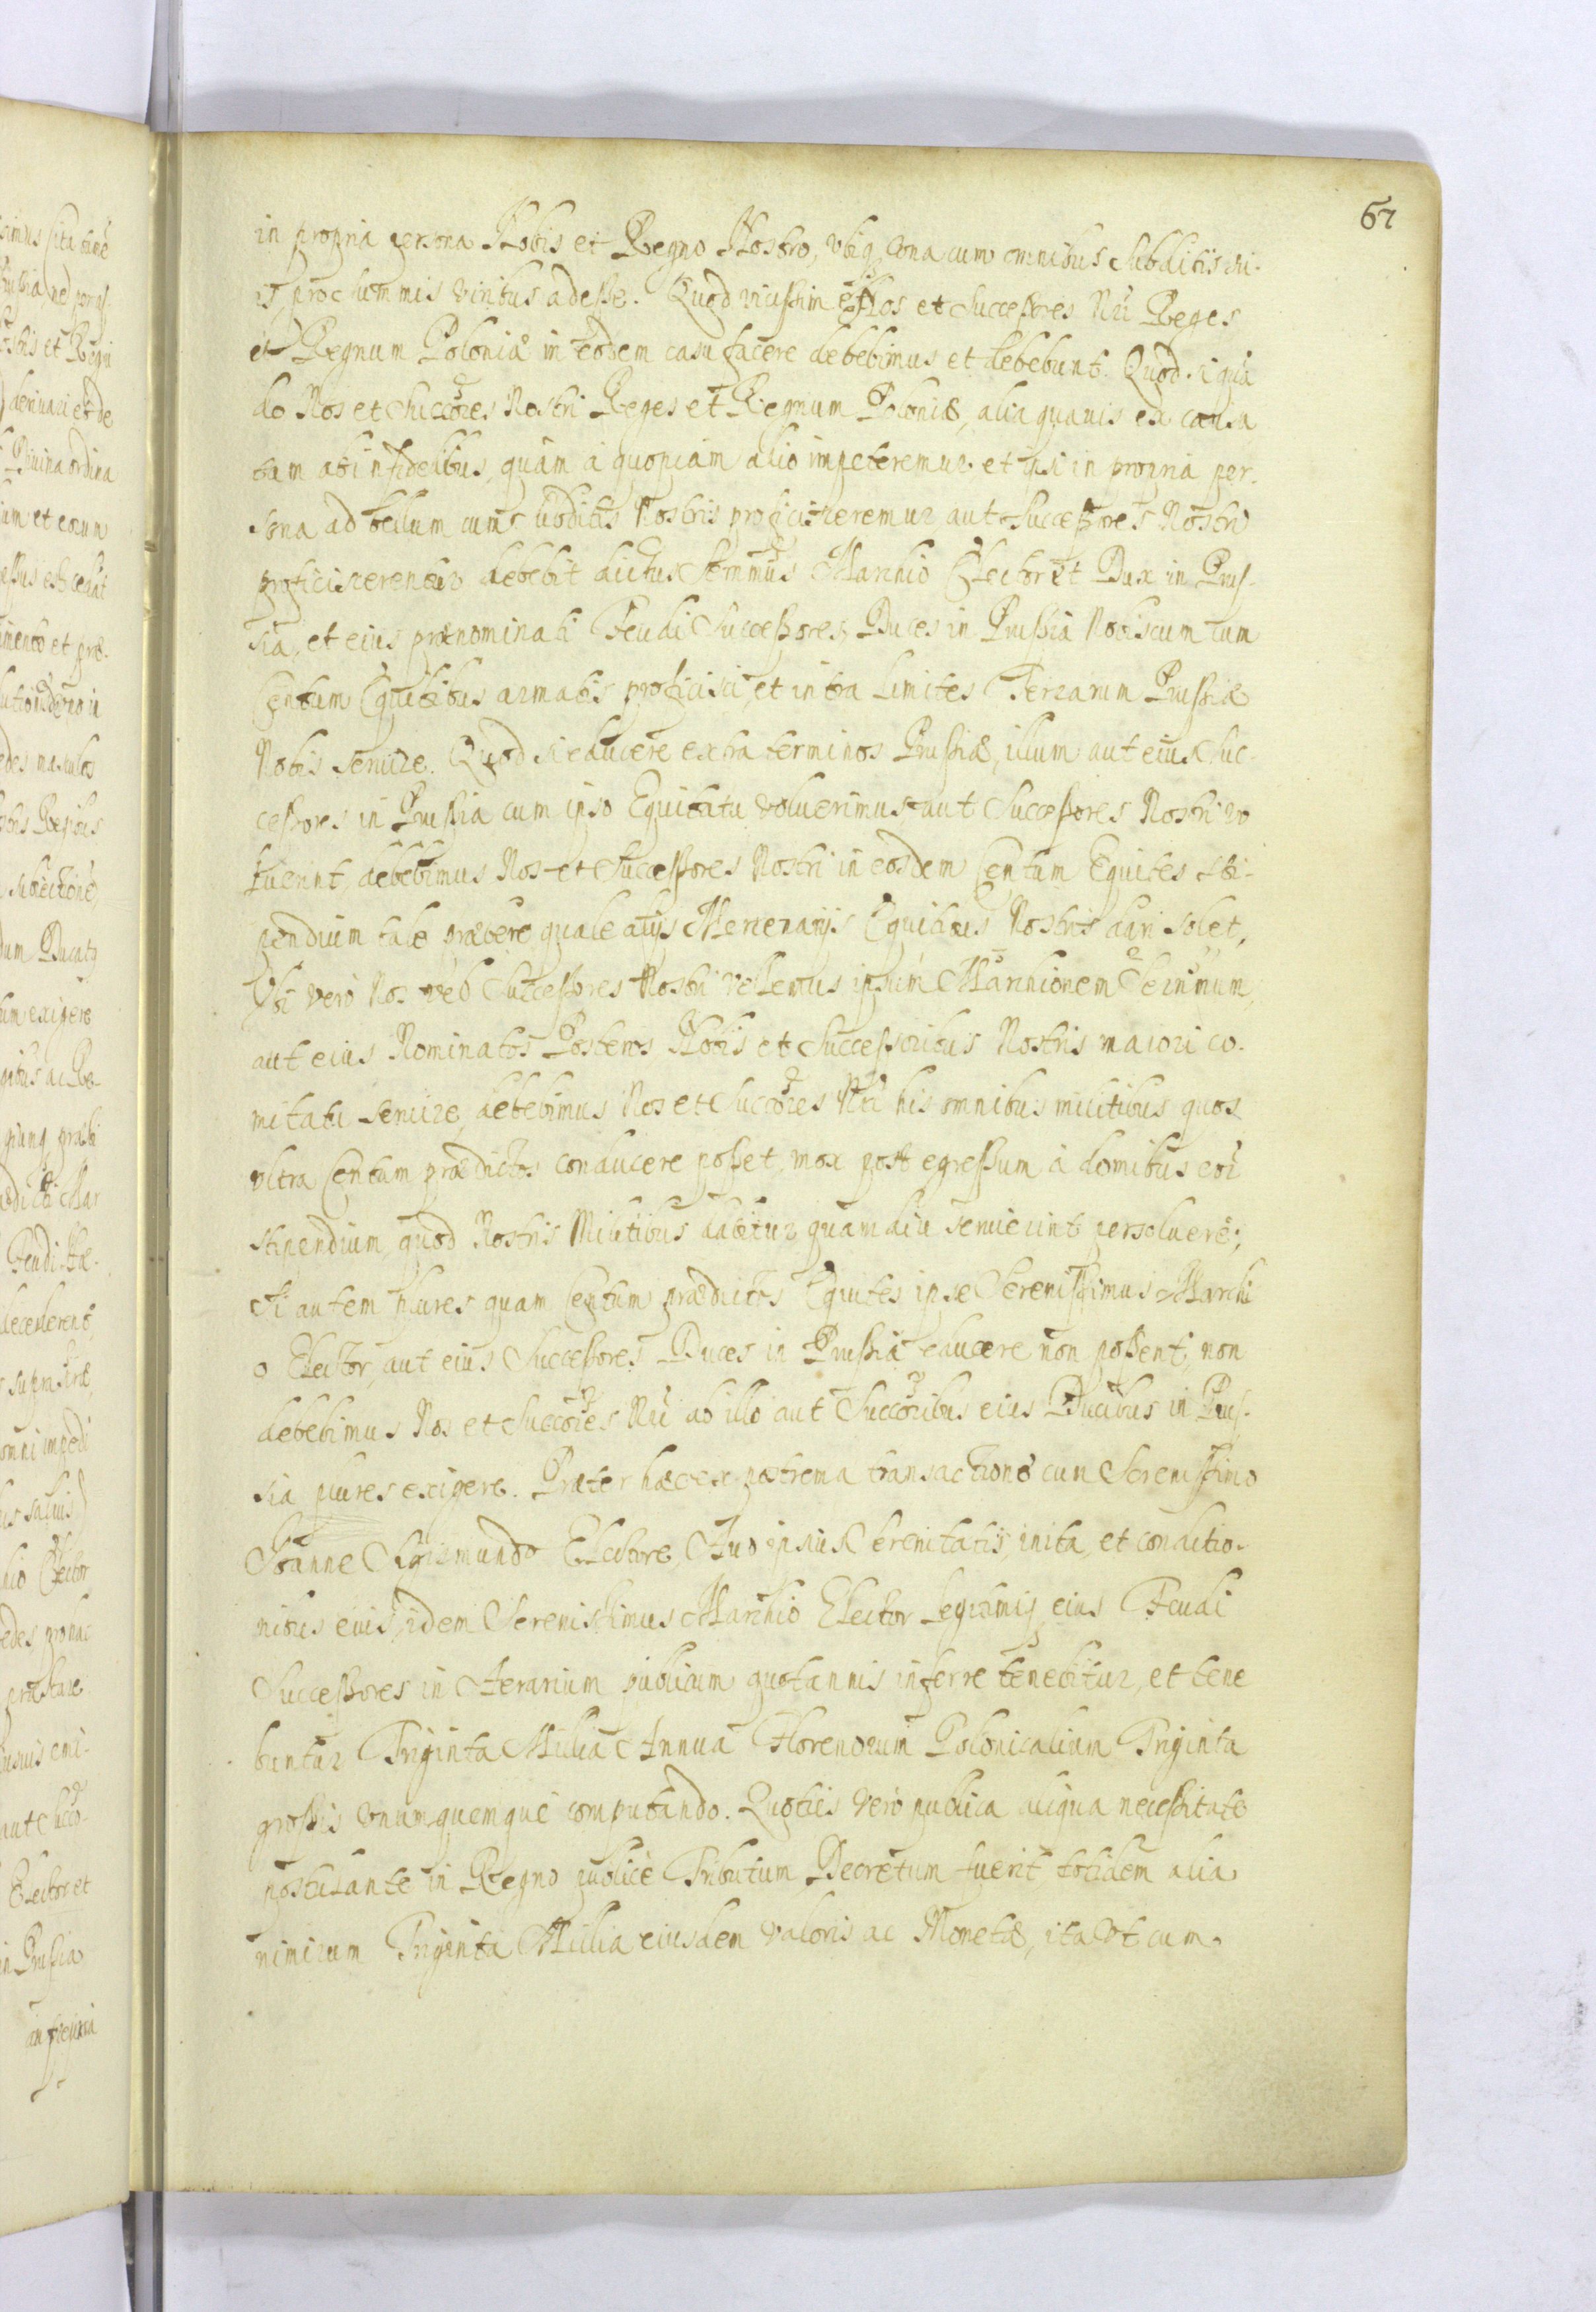 67
in propria persona Nobis et Regno Nostro, vbiq, vna cum omnibus Subditis su-
is, pro summis viribus adesse. Quod vicissim et Nos et Successores Nri Reges
et Regnum Poloniæ in eodem casu facere debebimus et debebunt. Quod si quã
do Nos et Succores Nostri Reges et Regnum Poloniæ, alia quauis ex causa
tam ab infidelibus, quàm à quopiam alio impeteremur et ipsi in propria per-
sona ad bellum cum subditis Nostris proficisceremur aut Successores Nostri
proficiscerentur debebit dictus Sermus Marchio Elector et Dux in Prus-
sia, et eius prænominati Feudi Successores, Duces in Prussia Nobiscum tum
Centum Equitibus armatis proficisci, et intra limites Terrarum Prussiæ
Nobis seruire. Quod si educere extra terminos Prussiæ, illum aut eius Suc-
cessores in Prussia cum ipso Equitatu voluerimus aut Successores Nostri vo
luerint, debebimus Nos et Successores Nostri in eosdem Centum Equites sti-
pendium tale præbere quale alijs Mercenarijs Equitibus Nostris dari solet,
Vbi verò Nos vel Successores Nostri vellemus ipsum Marchionem Serũmum,
aut eius Nominatos Posteros, Nobis et Successoribus Nostris maiori co-
mitatu seruire, debebimus Nos et Succores Nri his omnibus militibus quos
vltra Centum prædictos conducere posset, mox post egressum à domibus eorũ
stipendium, quod Nostris Militibus dabitur quamdiu seruierint persoluere;
Si autem plures quam Centum prædictos Equites ipse Serenissimus Marchi
o Elector, aut eius Successores Duces in Prussia educere non possent, non
debebimus Nos et Succores Nri ab illo aut Succoribus eius Ducibus in Prus-
sia plures exigere. Præter hæc ex postrema transactione cum Serenissimo
Joanne Sigismundo Electore, Auo ipsius Serenitatis inita, et conditio-
nibus eius, idem Serenissimus Marchio Elector Legitimiq eius Feudi
Successores in Aerarium publicum quotannis inferre tenebitur, et tene
buntur Triginta Millia Annua Florenorum Polonicalium Triginta
grossis vnumquemque computando. Quoties verò publica aliqua necessitate
postulante in Regno publicè Tributum Decretum fuerit totidem alia
nimirum Triginta Millia eiusdem valoris ac Monetæ, ita vt cum